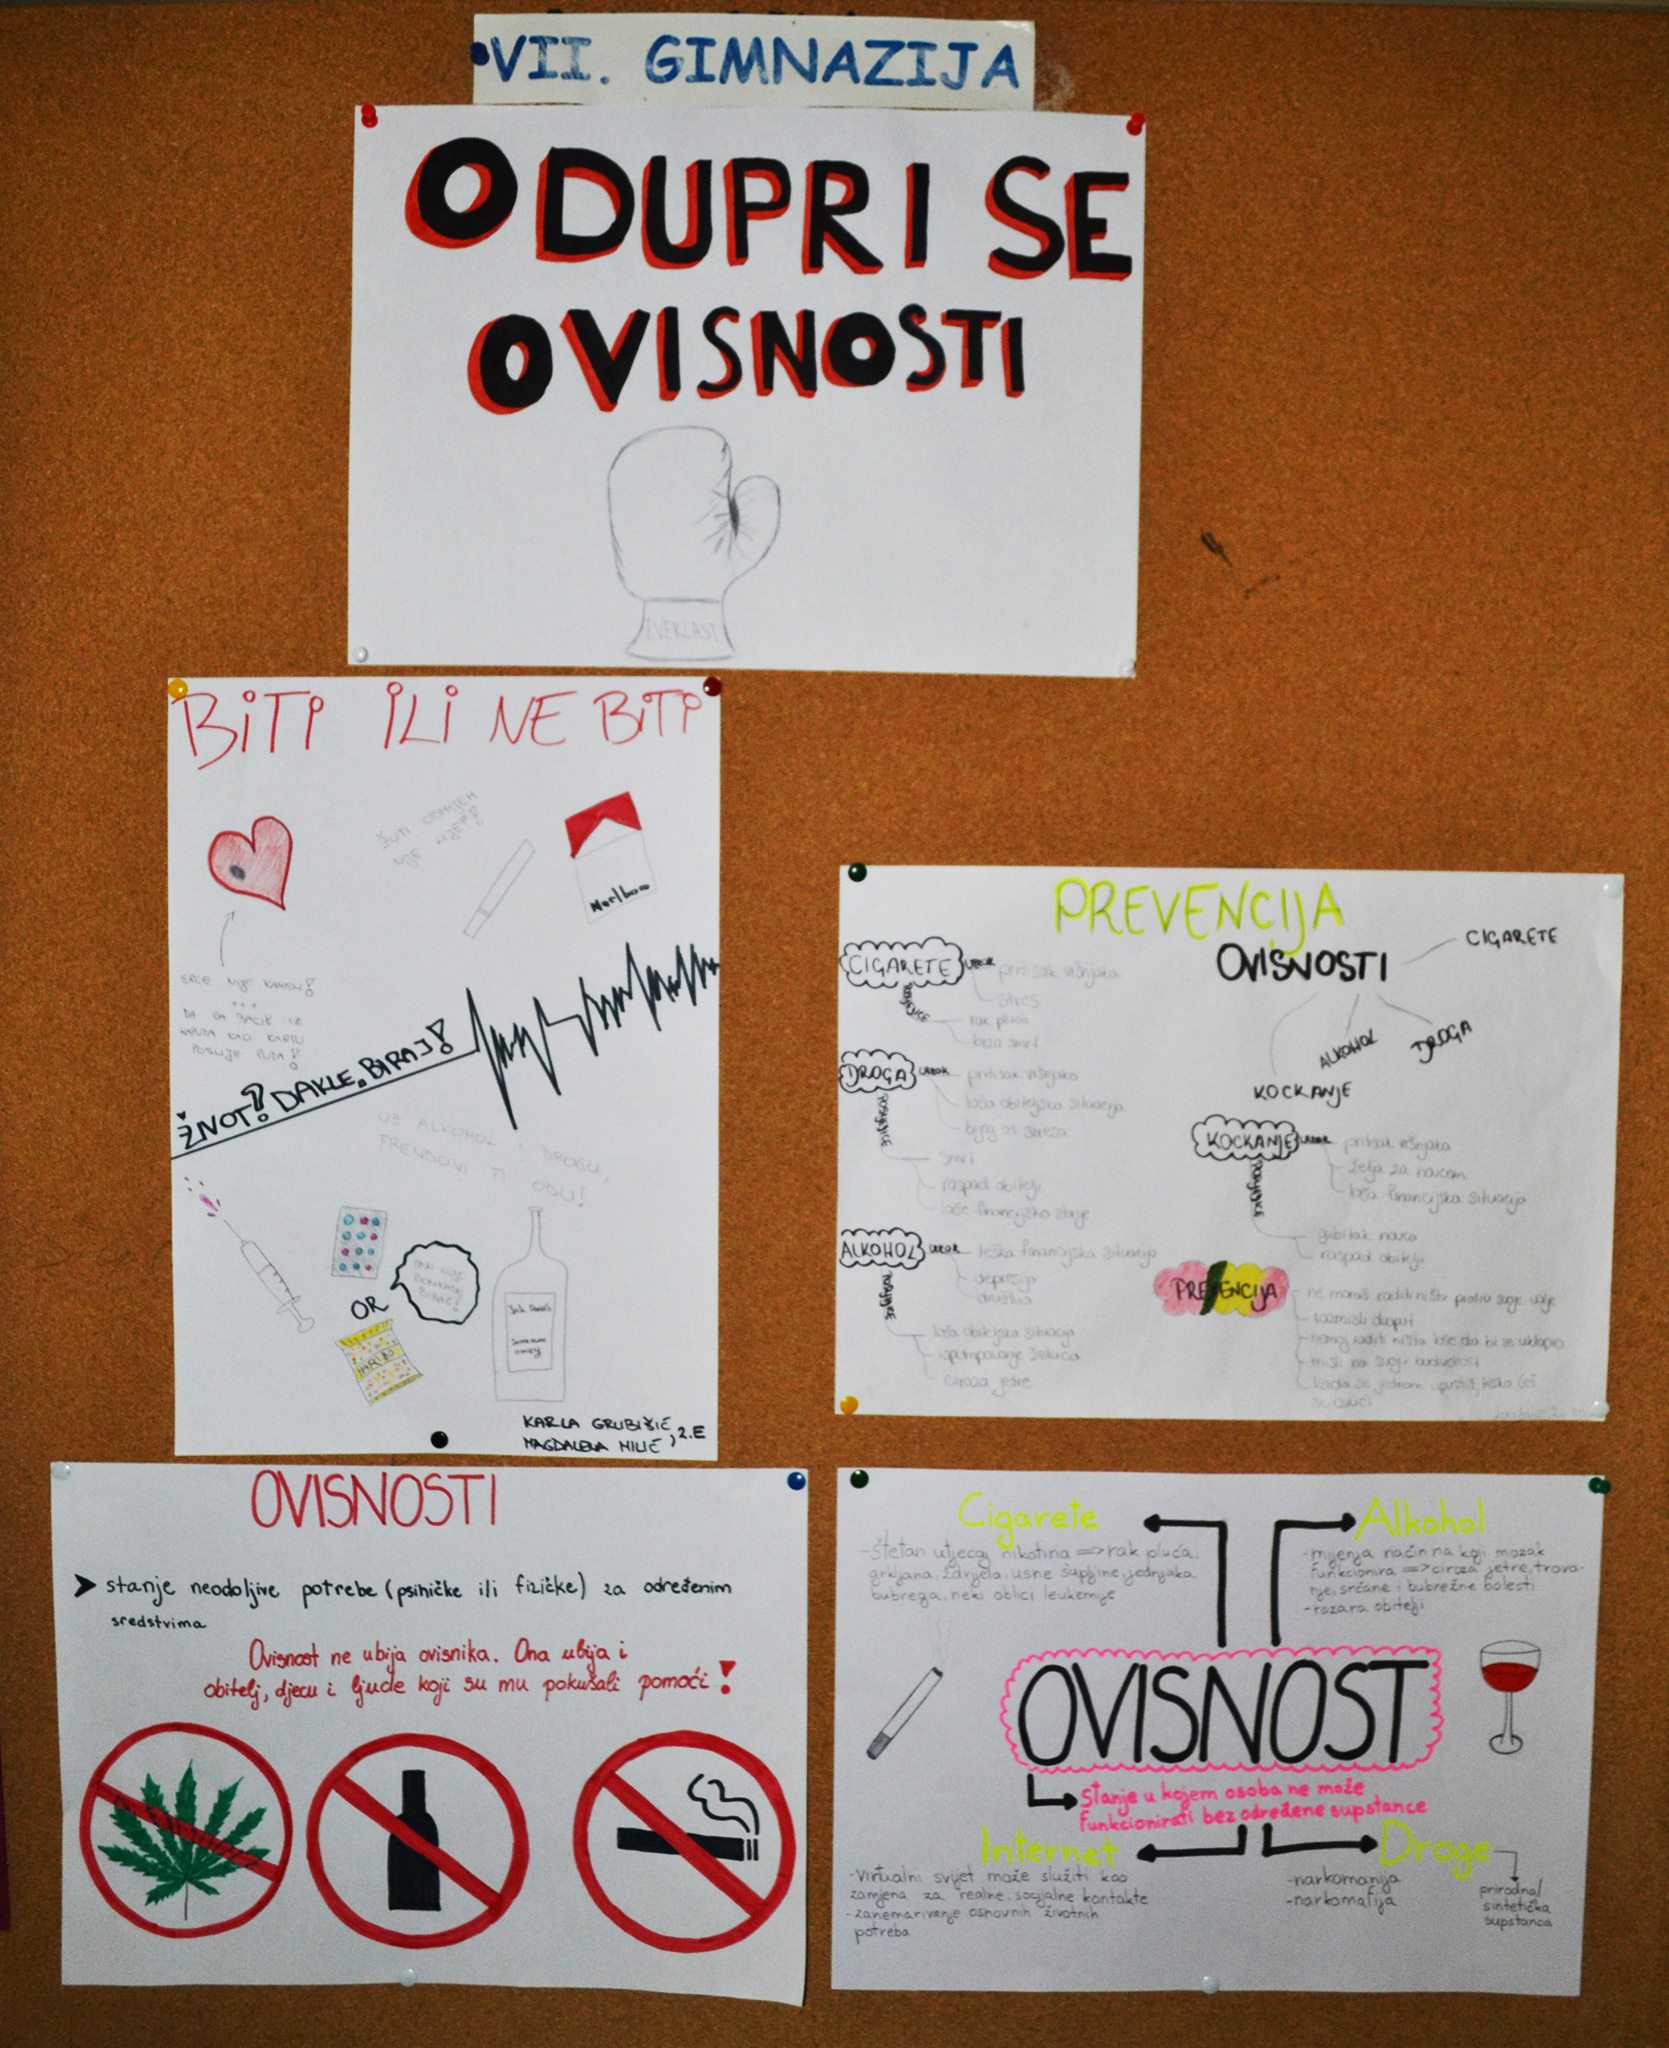 VII. GIMNAZIJA
ODUPRI SE
OVISNOSTI
EVERLAST
BITI ILI NE BITI
ŽUTI OSMIJEH
NIJE LIJEP!
Marlboro
SRCE NIJE KAMEN!
...
DA GA BACIŠ IZ
KAPUTA KAO KARTU
POSLIJE PUTA!
ŽIVOT? DAKLE, BIRAJ!
UZ ALKOHOL I DROGU,
FRENDOVI TI ODU!
OR
HARIBO
KARLA GRUBIŠIĆ, 2.E
MAGDALENA MILIĆ
PREVENCIJA
OVISNOSTI
CIGARETE
ALKOHOL
DROGA
KOCKANJE
CIGARETE
UZROK
pritisak vršnjaka
stres
POSLJEDICE
rak pluća
brza smrt
DROGA
UZROK
pritisak vršnjaka
loša obiteljska situacija
bjeg od stresa
POSLJEDICE
smrt
raspad obitelji
loše financijsko stanje
ALKOHOL
UZROK
teška financijska situacija
depresija
društvo
POSLJEDICE
loša obiteljska situacija
ispumpavanje želuca
ciroza jetre
KOCKANJE
UZROK
pritisak vršnjaka
želja za novcem
loša financijska situacija
POSLJEDICE
gubitak novca
raspad obitelji
PREVENCIJA
ne moraš raditi ništa protiv svoje volje
razmisli dvaput
nemoj raditi ništa loše da bi se uklopio
misli na svoju budućnost
kada se jednom upustiš, teško ćeš
se izvući
OVISNOSTI
stanje neodoljive potrebe (psihičke ili fizičke) za određenim
sredstvima
Ovisnost ne ubija ovisnika. Ona ubija i
obitelj, djecu i ljude koji su mu pokušali pomoći!
Cigarete
-štetan utjecaj nikotina => rak pluća,
grkljana, ždrijela, usne šupljine, jednjaka,
bubrega, neki oblici leukemije
Alkohol
-mijenja način na koji mozak
funkcionira => ciroza jetre, trova-
nje, srčane i bubrežne bolesti
-razara obitelji
OVISNOST
Stanje u kojem osoba ne može
funkcionirati bez određene supstance
Internet
-virtualni svijet može služiti kao
zamjena za realne, socijalne kontakte
-zanemarivanje osnovnih životnih
potreba
Droge
-narkomanija
-narkomafija
prirodna/
sintetička
supstanca